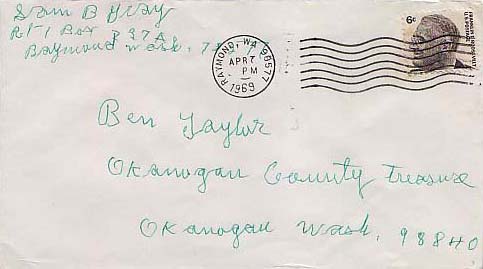 Sam B Gray
Rt 1 Box 237A
Raymond Wash.
RAYMOND, WA 98577
APR 7
PM
1969
6c
FRANKLIN D. ROOSEVELT
U.S. POSTAGE
Ben Taylor
Okanogan County Treasure
Okanogan Wash. 98840